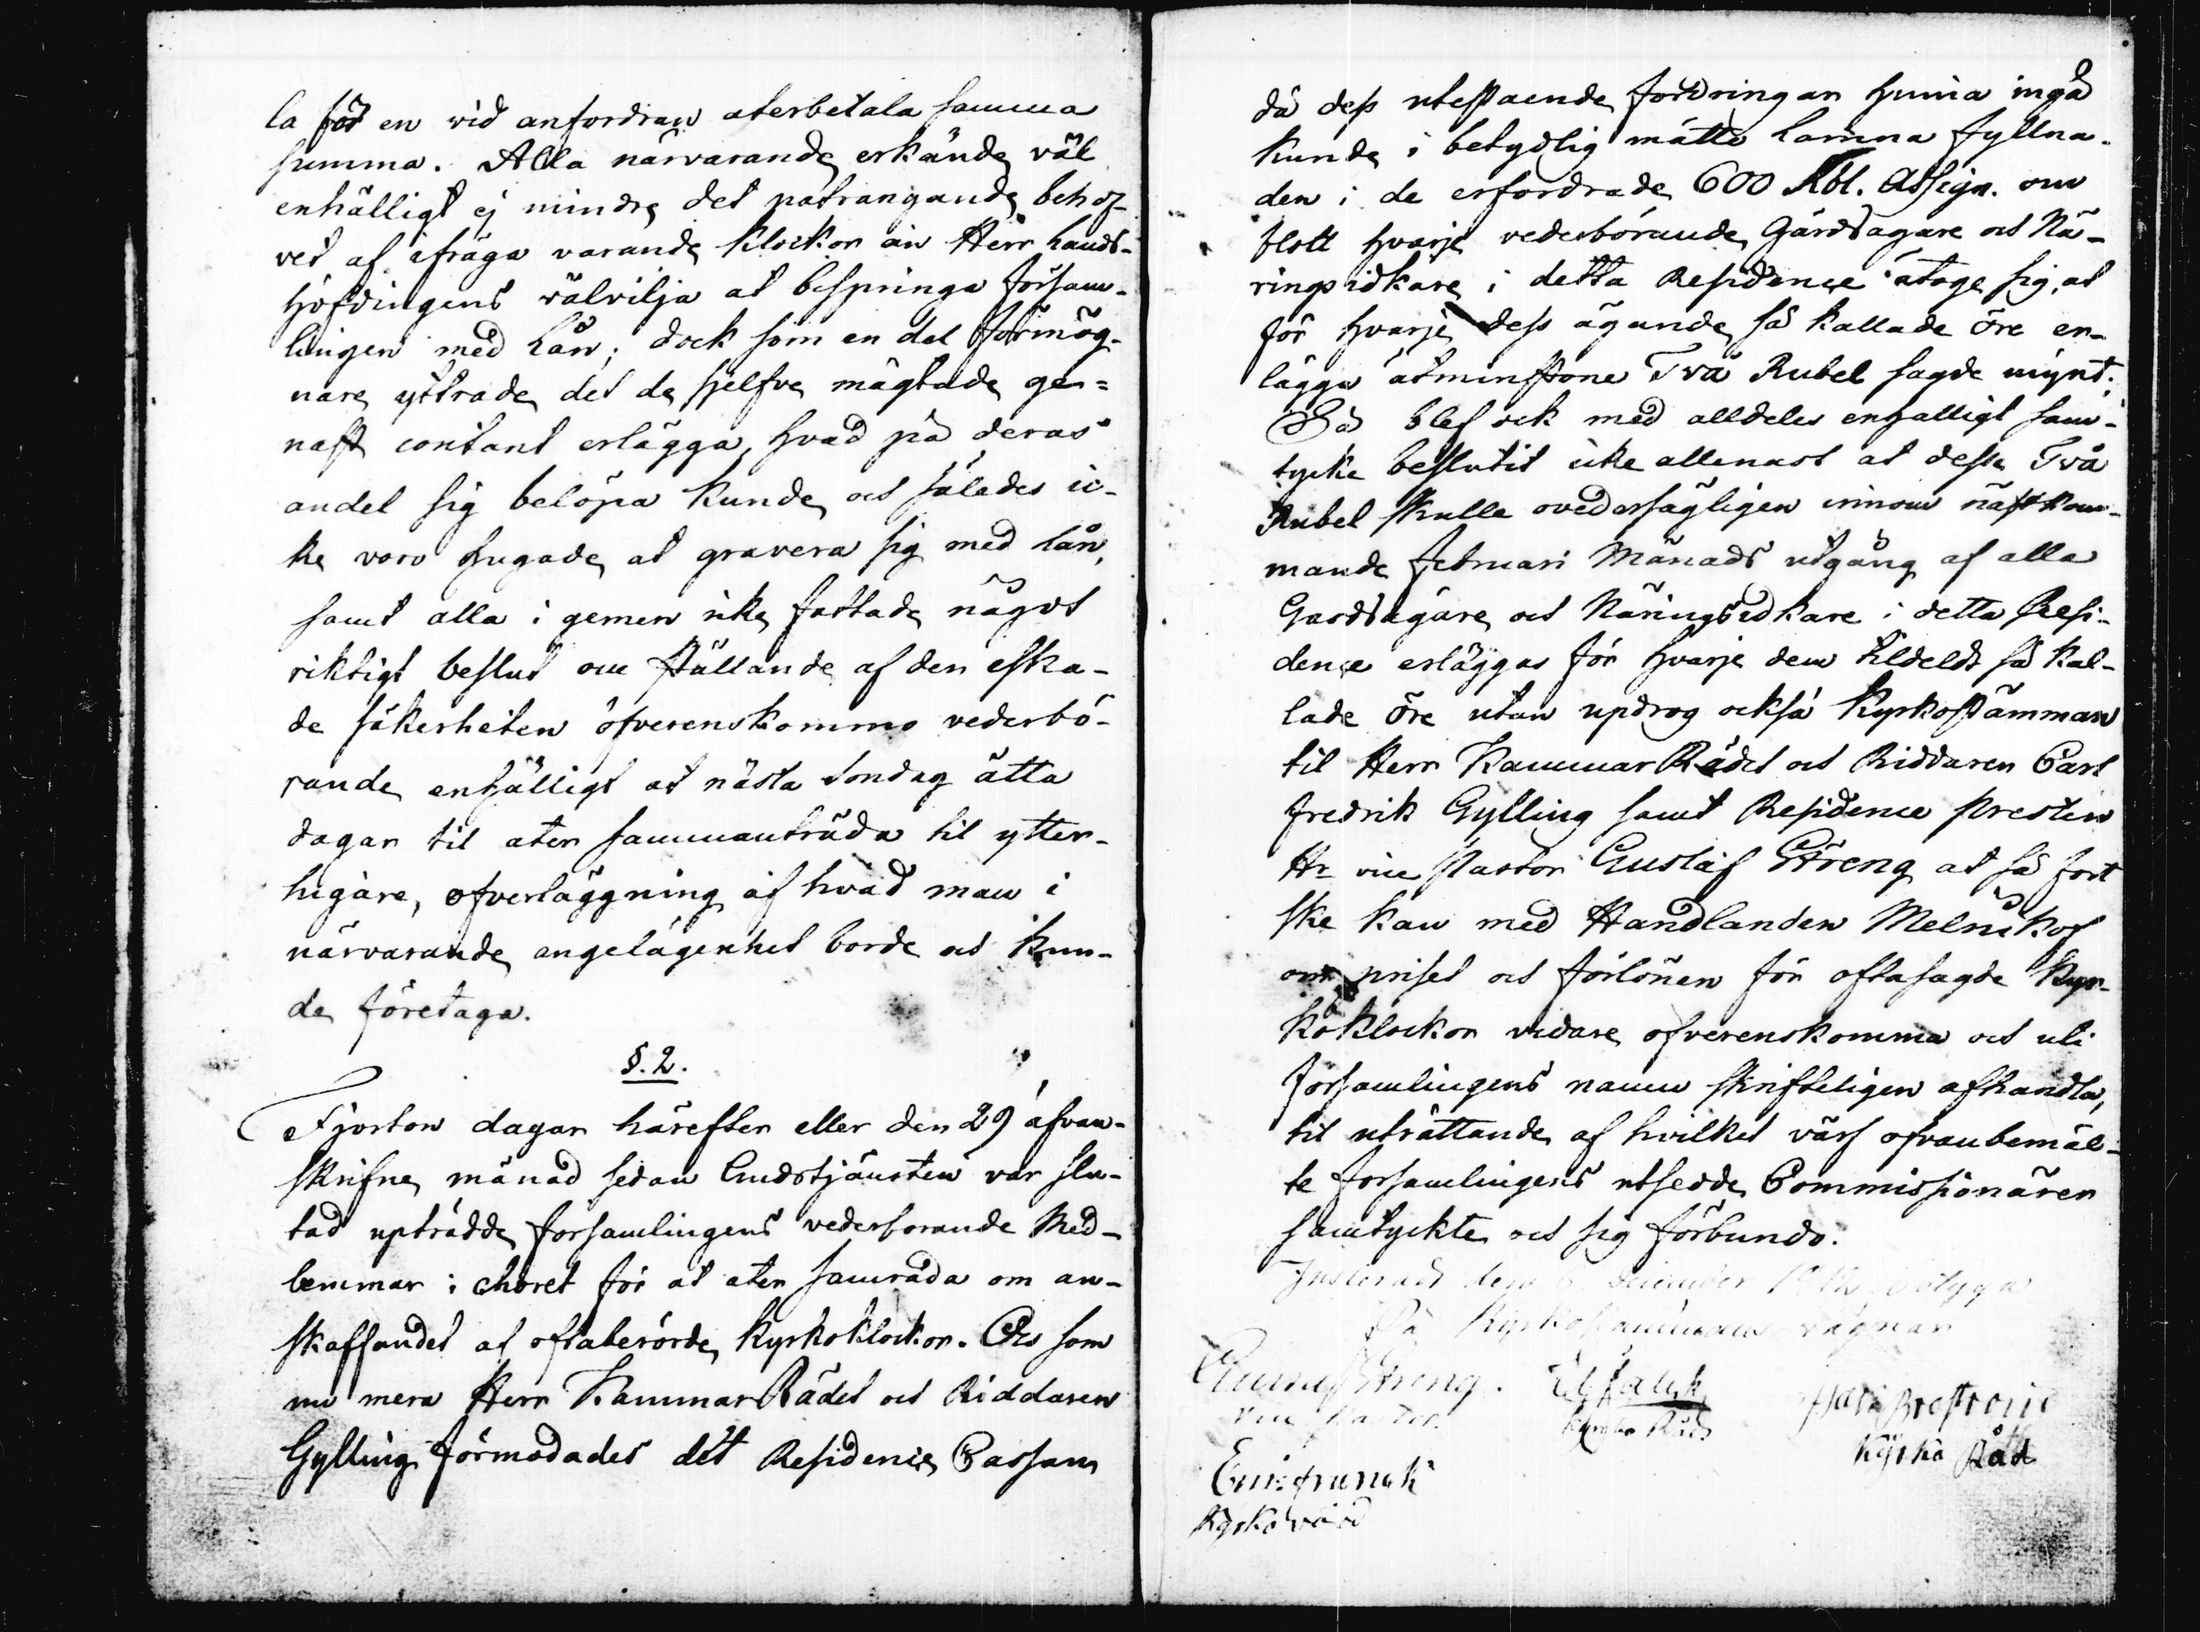 la för en vid anfordran återbetala samma
summa. Alla närvarande erkände väl
enhälligt ej mindre det påträngande behof-
vet af ifråga varande klockor än Herr Lands-
höfdingens välvilja at bespringa försam-
lingen med Lån; dock som en del förmög-
nare yttrade det de sjelfve mägtade ge-
nast contant erlägga, hvad på deras
andel sig belöpa kunde, och således ic-
ke voro hugade at gravera sig med lån,
samt alla i gemen icke fattade något
riktigt beslut om ställande af den äska-
de säkerheten öfverenskommo vederbö-
rande enhälligt at nästa Söndag åtta
dagar til åter sammanträda til ytter-
ligare, öfverläggning af hvad man i
närvarande angelägenhet borde och kun-
de företaga.
§. 2.
Fjorton dagar härefter eller den 29 afvan-
skrifne månad sedan Gudstjänsten var slu-
tad upträdde församlingens vederbörande Med-
lemmar i choret för at åter samråda om an-
skaffandet af oftaberörde kyrkoklockor. Och som
nu mera Herr KammarRådet och Riddaren
Gylling förmodades det Residence Cassans
då dess utestående fordringar hunna ingå
kunde i betydlig måtto lämna fyllna-
den i de erfordrade 600 Rbl. Assign. om
blott hvarje vederbörande Gårdsägare och Nä-
ringsidkare i detta Residence åtoge sig, at
för hvarje dess ägande så kallade öre er-
lägga åtminstone Två Rubel sagde mynt;
Så blef och med alldeles enhälligt sam-
tycke beslutit icke allenast at desse Två
Rubel skulle ovedersägligen innom nästkom-
mande Februari Månads utgång af alla
Gårdsägare och Näringsidkare i detta Resi-
dence erläggas för hvarje dem tildelt så kal-
lade öre utan updrog också Kyrkostämman
til Herr KammarRådet och Riddaren Carl
Fredrik Gylling samt Residence Presten
Hr vice Pastor Gustaf Streng at så fort
ske kan med Handlanden Melnikof
om priset och förlönen för oftasagde Kyr-
koklockor vidare öfverenskomma och uti
församlingens namn skrifteligen afhandla,
til uträttande af hvilket värf ofvanbemäl-
te församlingens utsedde Commissionären
samtyckte och sig förbundo.
Justerads den December
På Kyrkostämmans vägnar
Streng.
vice Pastor.
Kyrko Råd
Kyrko Råd
Kyrkovärd